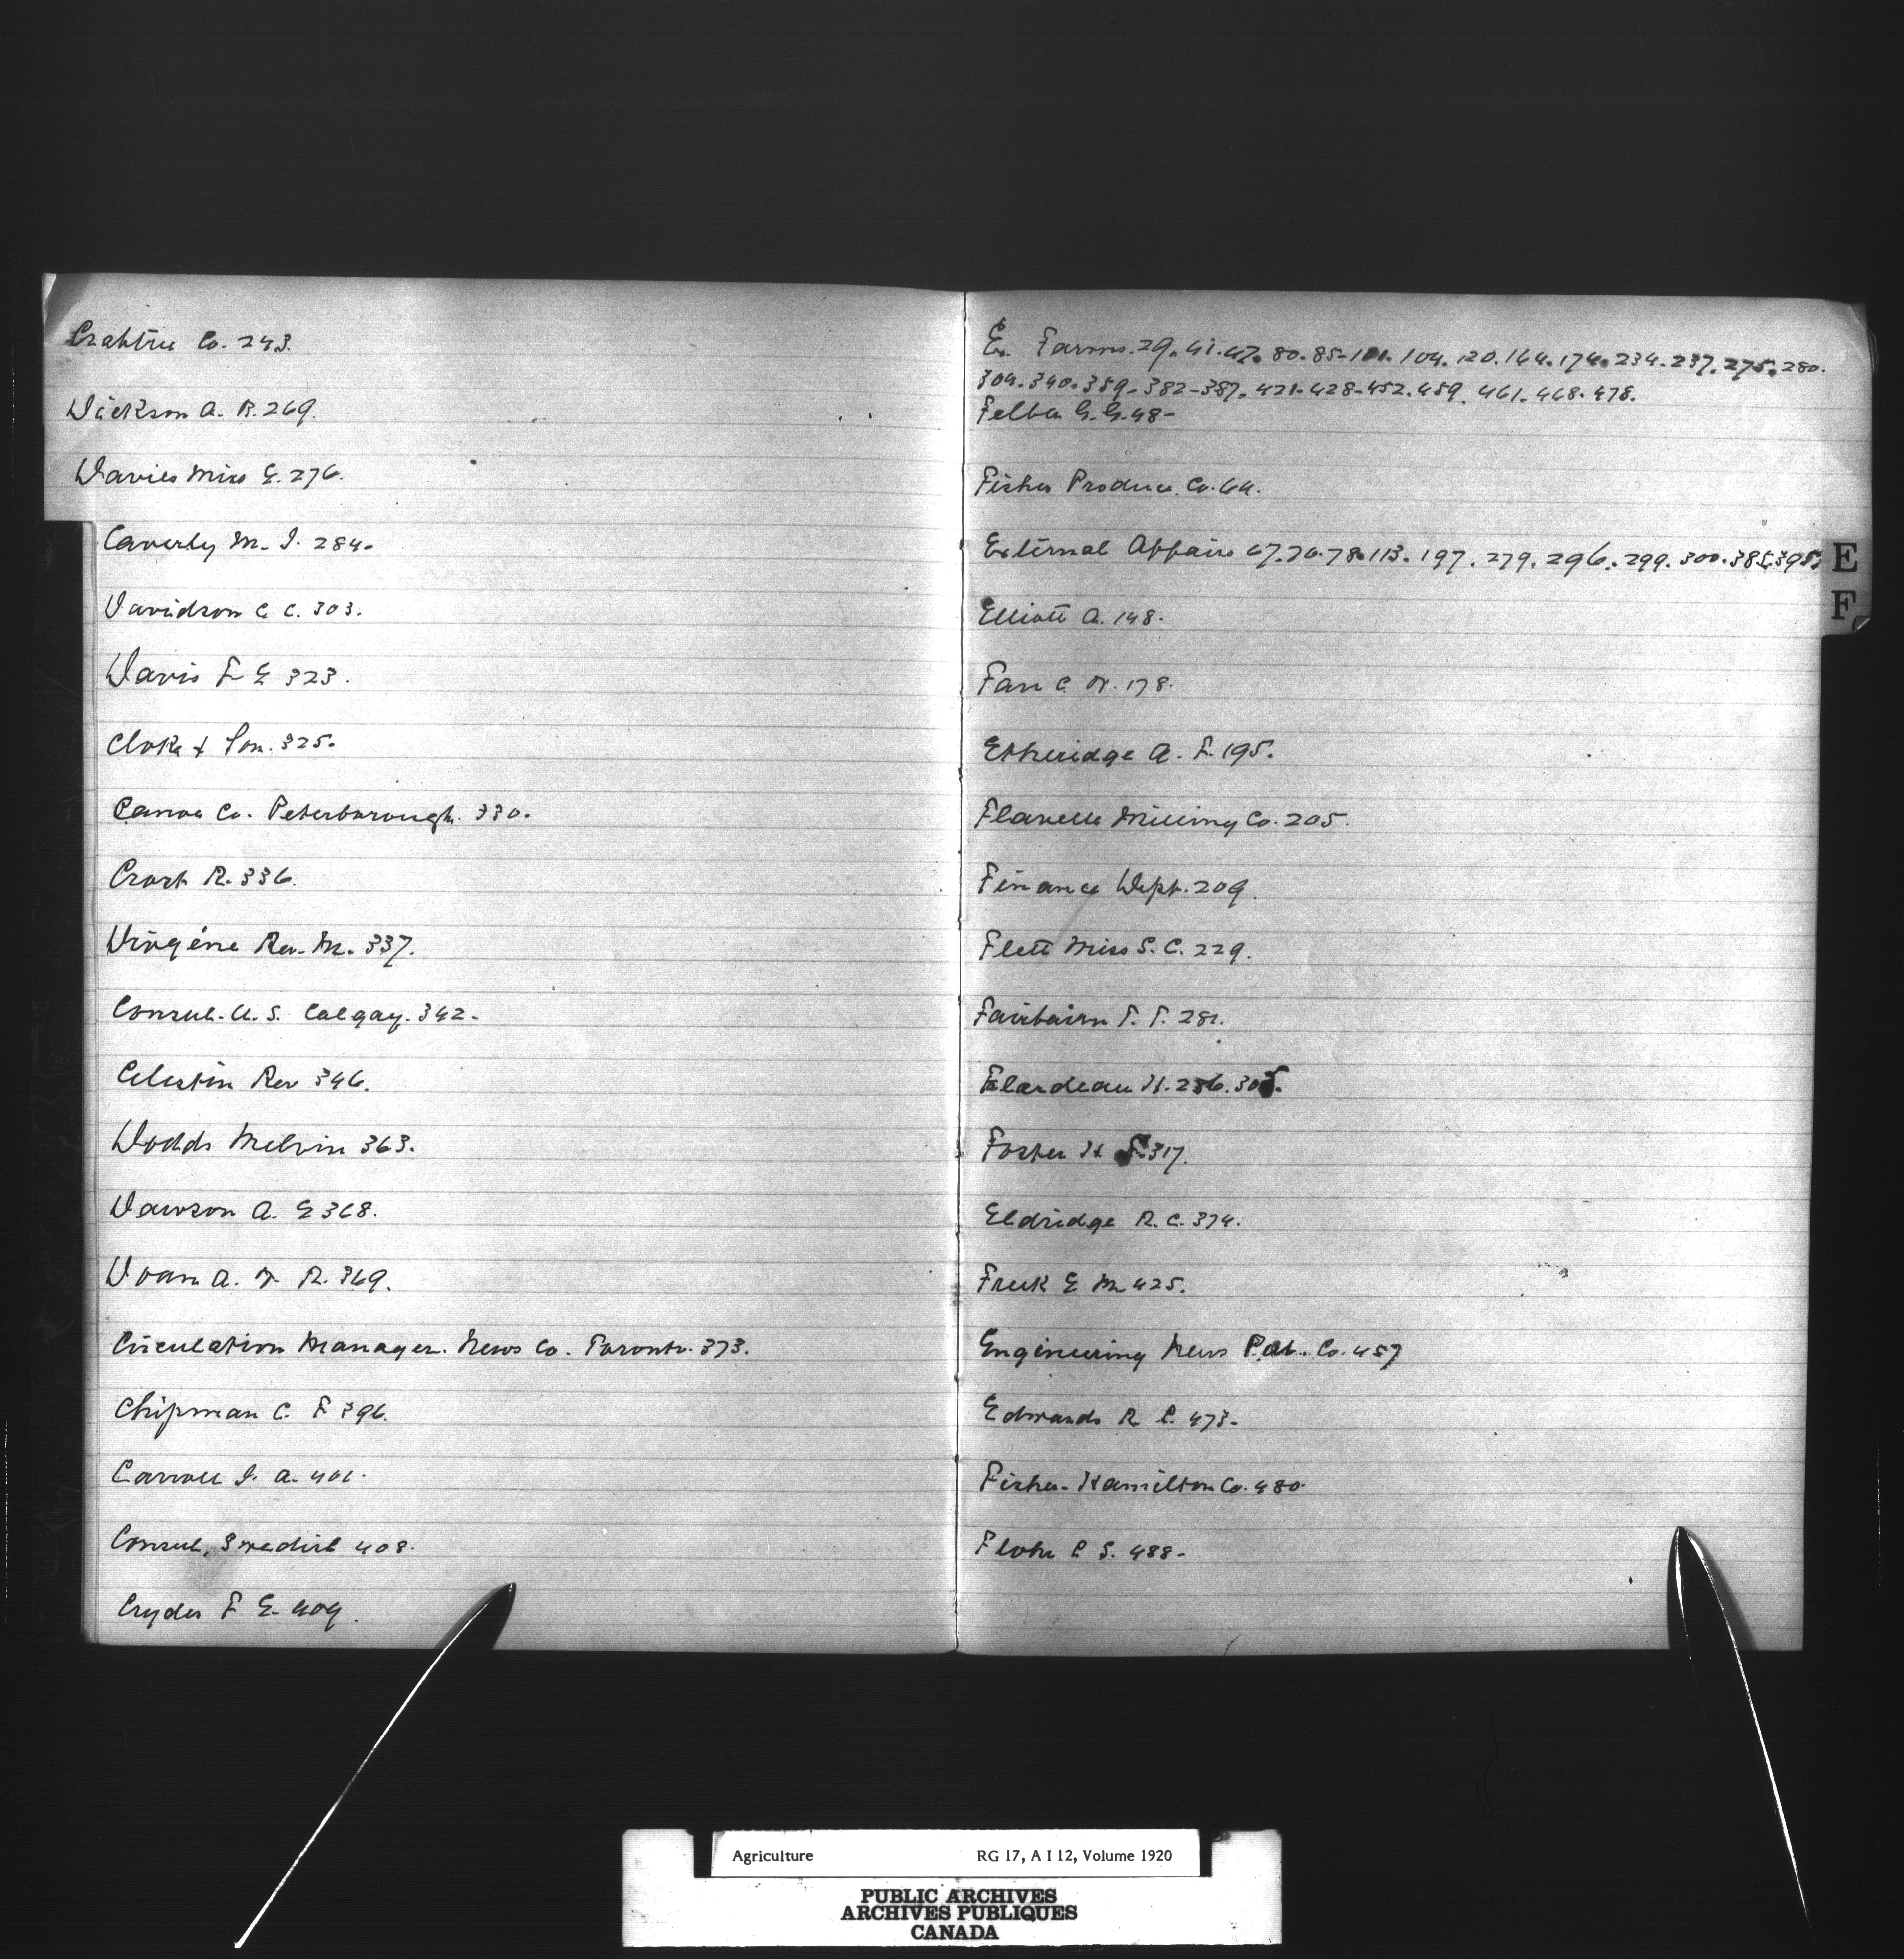 Crabtree Co. 243.
Dickson A. R. 269.
Davies Miss E. 276.
Caverly M. I. 284.
Davidson C. C. 303.
Davis F E 323.
Cloke & Son. 325.
Canoe Co. Peterborough. 330.
Crost R. 336.
Diogéne Rev. M. 337.
Consul. U. S. Calgay. 342.
Celestin Rev 346.
Dodds Melvin 363.
Dawson A. E 368.
Doan A. W. R. 369.
Circulation Manager. News Co. Toronto. 373.
Chipman C. F 396.
Carroll I. A. 401.
Consul, Swedish 408.
Cryder F E. 409.
Ex. Farms. 29. 41. 47. 80. 85. 101. 104. 120. 164. 174. 234. 237. 275. 280.
304. 340. 359. 382. 387. 421. 428. 452. 459. 461. 468. 478.
Felba G. G. 48.
Fisher Produce. Co. 64.
External Affairs 67. 70. 78. 113. 197. 279. 296. 299. 300. 385. 395.
E
F
Elliott A. 148.
Farr C. W. 178.
Etheridge A. F. 195.
Flavelle Milling Co. 205.
Finance Dept. 209.
Flett Miss S. C. 229.
Fairbairn T. T. 281.
H. 286. 305.
Foster H 317.
Eldridge R. C. 374.
Freek E M 425.
Engineering News Pub. Co. 457
Edwards R. C. 473.
Fisher-Hamilton Co. 480.
Flohr C S. 488.
Agriculture RG 17, A I 12, Volume 1920
PUBLIC ARCHIVES
ARCHIVES PUBLIQUES
CANADA